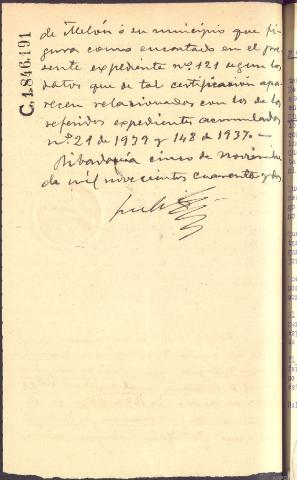 C.1.846.191
de Melón ó su municipio que fi-
gura como encartado en el pre
sente expediente nº. 121 segun los
datos que de tal certificación apa-
recen relacionados con los de los
referidos expedientes acumulados
nº. 21 de 1939 y 148 de 1937.=
Ribadavia cinco de noviembre
de mil novecientos cuarenta y dos